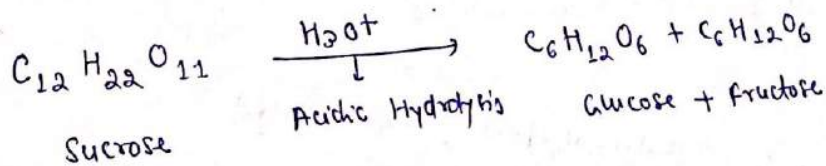 C₁₂ H₂₂ O₁₁ H₃O⁺ → C₆H₁₂O₆ + C₆H₁₂O₆
Sucrose Acidic Hydrolysis Glucose + fructose